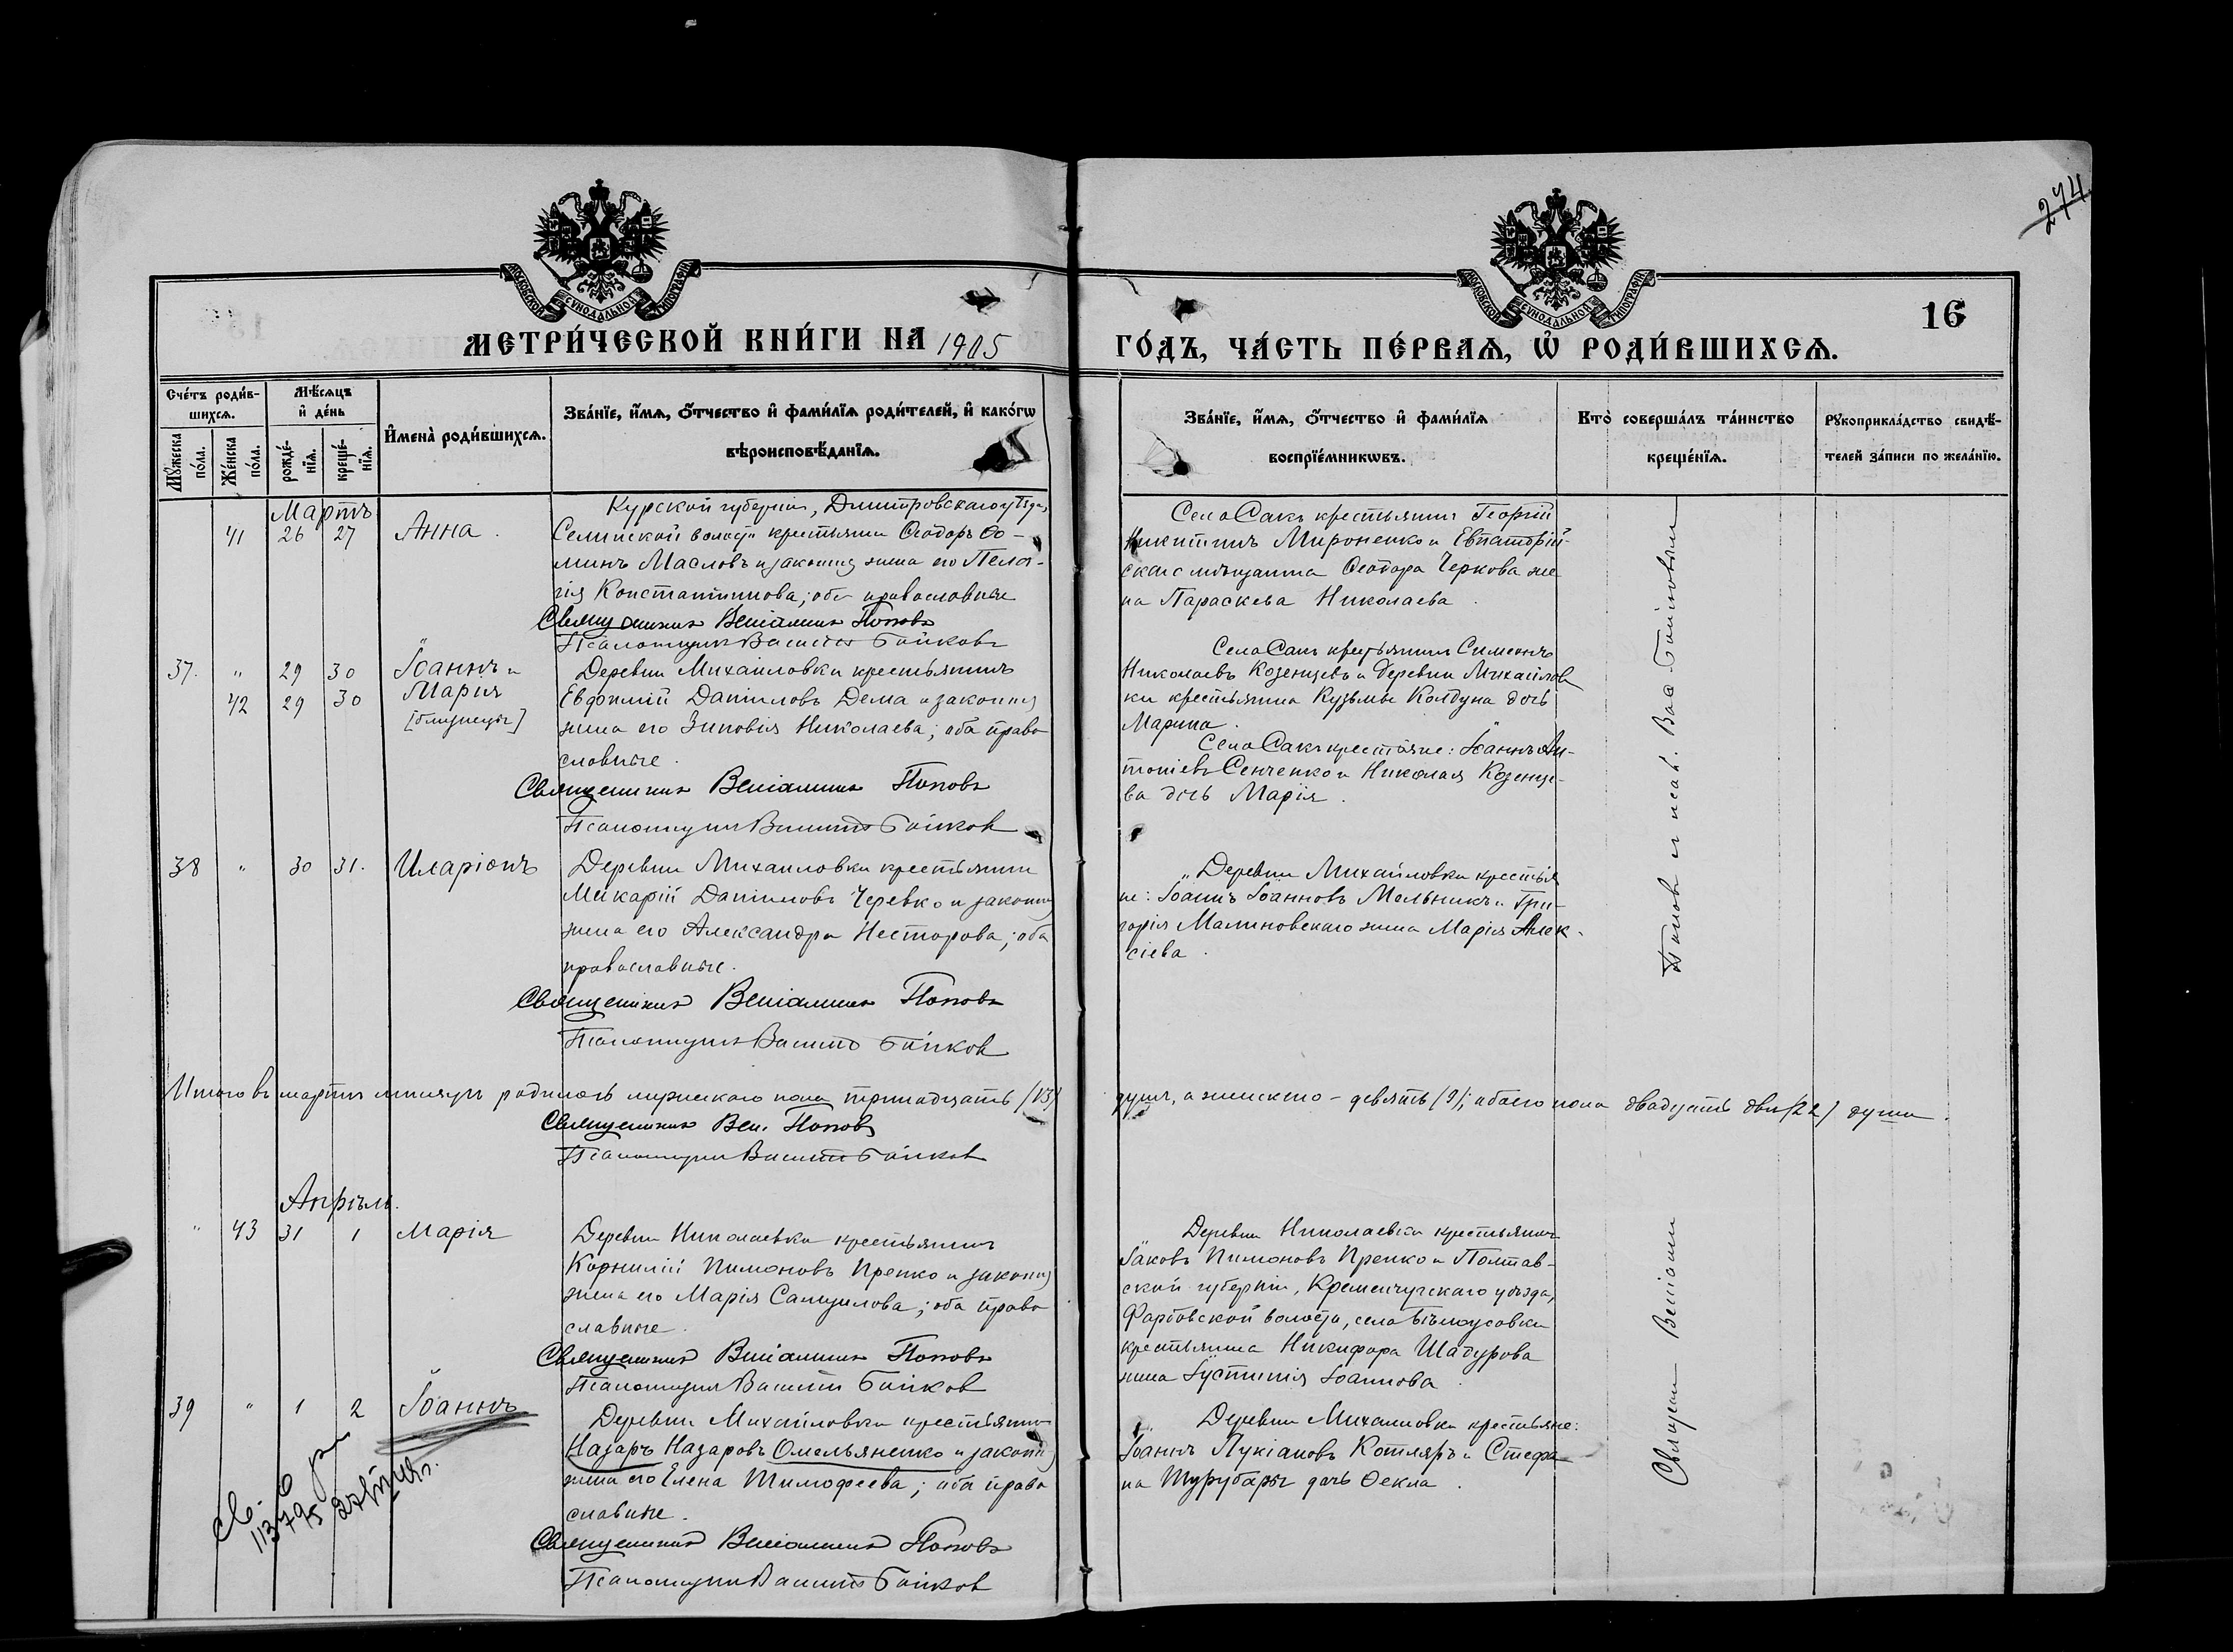 274
МОСКОВСКОЙ СѴНОДАЛЬНОЙ ТИПОГРАФІИ
МОСКОВСКОЙ СѴНОДАЛЬНОЙ ТИПОГРАФІИ
16
МЕТРИ́ЧЕСКОЙ КНИ́ГИ НА 1905
ГО́ДЪ, ЧА́СТЬ ПЕ́РВАѦ, Ѡ҆ РОДИ́ВШИХСѦ.
Сче́тъ роди́в-
шихсѧ.
Мѣ́сѧцъ
и҆ де́нь
Мꙋ́жеска
по́ла.
Же́нска
по́ла.
рожде́-
нїѧ.
креще́-
нїѧ.
И҆мена̀ роди́вшихсѧ.
Зва́нїе, и҆́мѧ, ѻ҆́тчество и҆ фами́лїѧ роди́телей, и҆ како́гѡ
вѣроисповѣ́данїѧ.
Зва́нїе, и҆́мѧ, ѻ҆́тчество и҆ фами́лїѧ
воспрїе́мникѡвъ.
Кто̀ соверша́лъ та́инство
креще́нїѧ.
Рꙋкоприкла́дство свидѣ́-
телей за́писи по жела́нїю.
Мартъ
41 26 27 Анна.
Курской губерніи, Дмитровскаго уѣзда,
волости крестьянинъ Ѳеодоръ Ѳо-
минъ Масловъ и законная жена его Пела-
гія Константинова; оба православные
Священникъ Веніаминъ Поповъ
Псаломщикъ Василій Бойковъ
Села Сакъ крестьянинъ Георгій
Никитинъ Мироненко и Евпаторій-
скаго мѣщанина Ѳеодора Черкова же
на Параскева Николаева.
37. " 29 30 Іоаннъ и
42 29 30 Марія
[близнецы]
Деревни Михайловки крестьянинъ
Евдокимій Даніиловъ Дема и законная
жена его Зиновія Николаева; оба право
славные.
Священникъ Веніаминъ Поповъ
Псаломщикъ Василій Бойковъ
Села Сакъ крестьянинъ Симеонъ
Николаевъ Козенцевъ и деревни Михайлов
ки крестьянина Кузьмы Колдуна дочь
Марина.
Села Сакъ крестьяне: Іоаннъ Ан-
тоніевъ Сенченко и Николая Козенце-
ва дочь Марія.
38 " 30 31. Иларіонъ
Деревни Михайловки крестьянинъ
Макарій Даніиловъ Черевко и законная
жена его Александра Несторова; оба
православные.
Священникъ Веніаминъ Поповъ
Псаломщикъ Василій Бойковъ
Деревни Михайловки крестья
не: Іоаннъ Іоанновъ Мельникъ и Гри-
горія Малиновскаго жена Марія Алек-
сіева.
Итого въ мартѣ мѣсяцѣ родилось мужескаго пола тринадцать (13)
душъ, а женскаго – девять (9); обоего пола двадцать двѣ (22) души.
Священникъ Вен. Поповъ
Псаломщикъ Василій Бойковъ
Апрѣль.
" 43 31 1 Марія
Деревни Николаевки крестьянинъ
Корнилій Пимоновъ Препко и законная
жена его Марія Самуилова; оба право
славные.
Священникъ Веніаминъ Поповъ
Псаломщикъ Василій Бойковъ
Деревни Николаевки крестьянинъ
Іаковъ Пимоновъ Препко и Полтав-
ской губерніи, Кременчугскаго уѣзда,
волости, села Бѣлоусовки
крестьянина Никифора Шадурова
жена Іустинія Іоаннова.
39 " 1 2 Іоаннъ
Деревни Михайловки крестьянинъ
Назаръ Назаровъ Омельяненко и законная
жена его Елена Тимофеева; оба право
славные.
Священникъ Веніаминъ Поповъ
Псаломщикъ Василій Бойковъ
Деревни Михайловки крестьяне:
Іоаннъ Лукіановъ Котляръ и Стефа-
на Шурубары дочь Ѳекла.
Священ. Веніамин
Поповъ съ псал. Вас. Бойковым